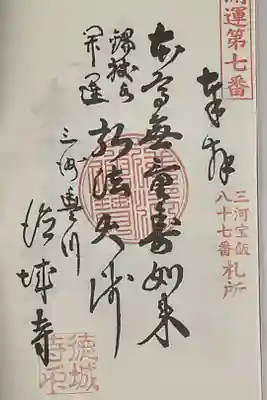 開運第七番
奉拝
三河宝飯
八十七番札所
本尊無量寿如来
開運
弘法大師
三河豊川
徳城寺
徳城
寺印